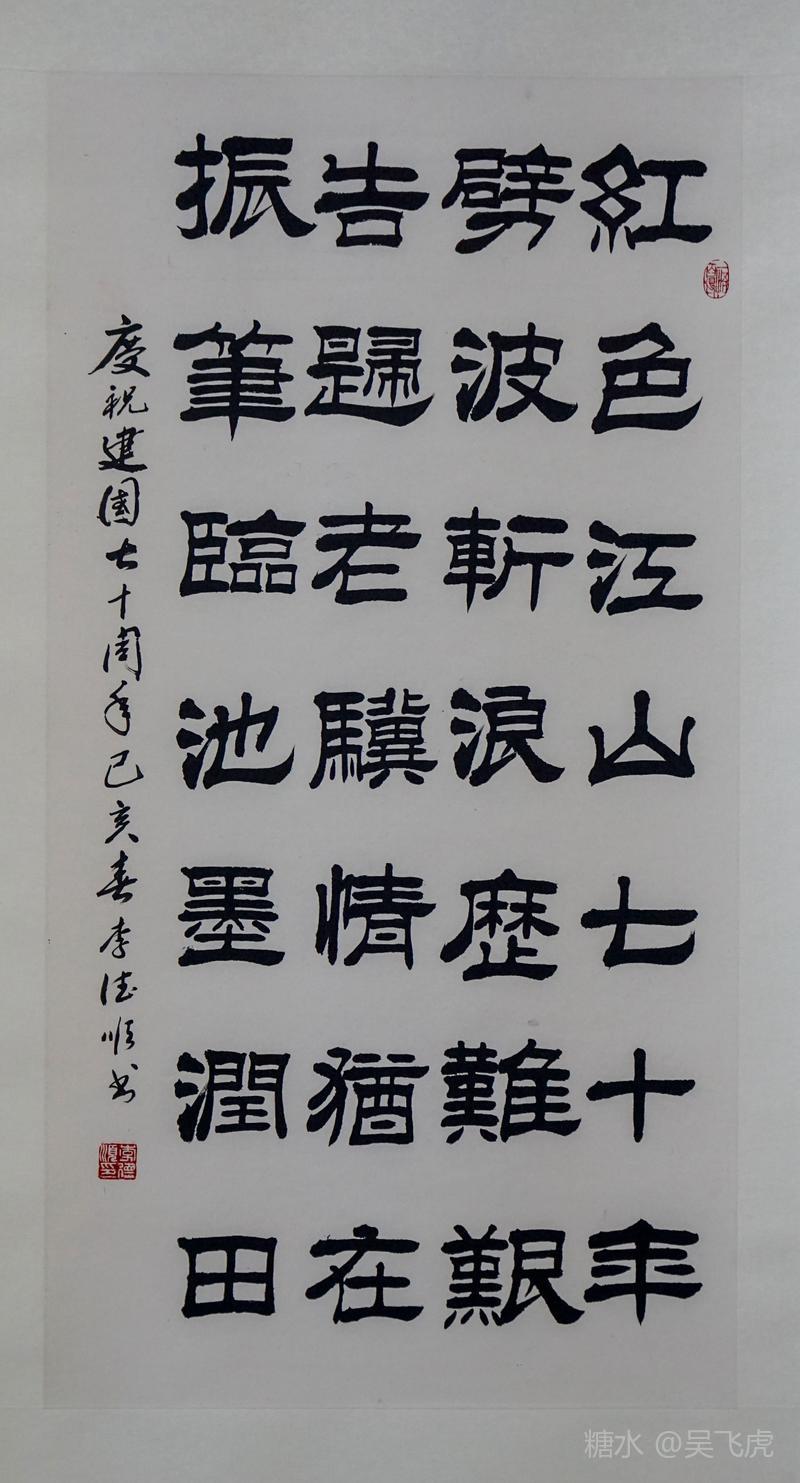 紅色江山七十年
劈波斬浪歷難艱
告歸老驥情猶在
振筆臨池墨潤田
慶祝建國七十周年己亥春李德順书
李德順印
糖水 @吴飞虎